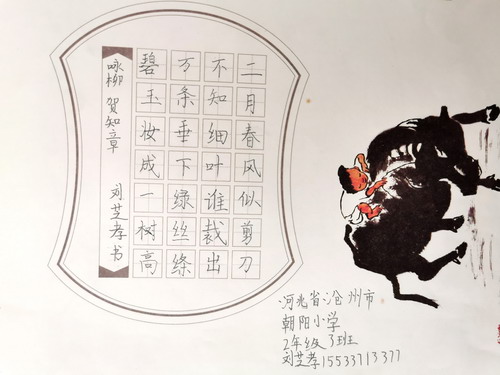 咏柳 贺知章 刘芝孝书
碧玉妆成一树高
万条垂下绿丝绦
不知细叶谁裁出
二月春风似剪刀
河北省沧州市
朝阳小学
2年级3班
刘芝孝15533713377